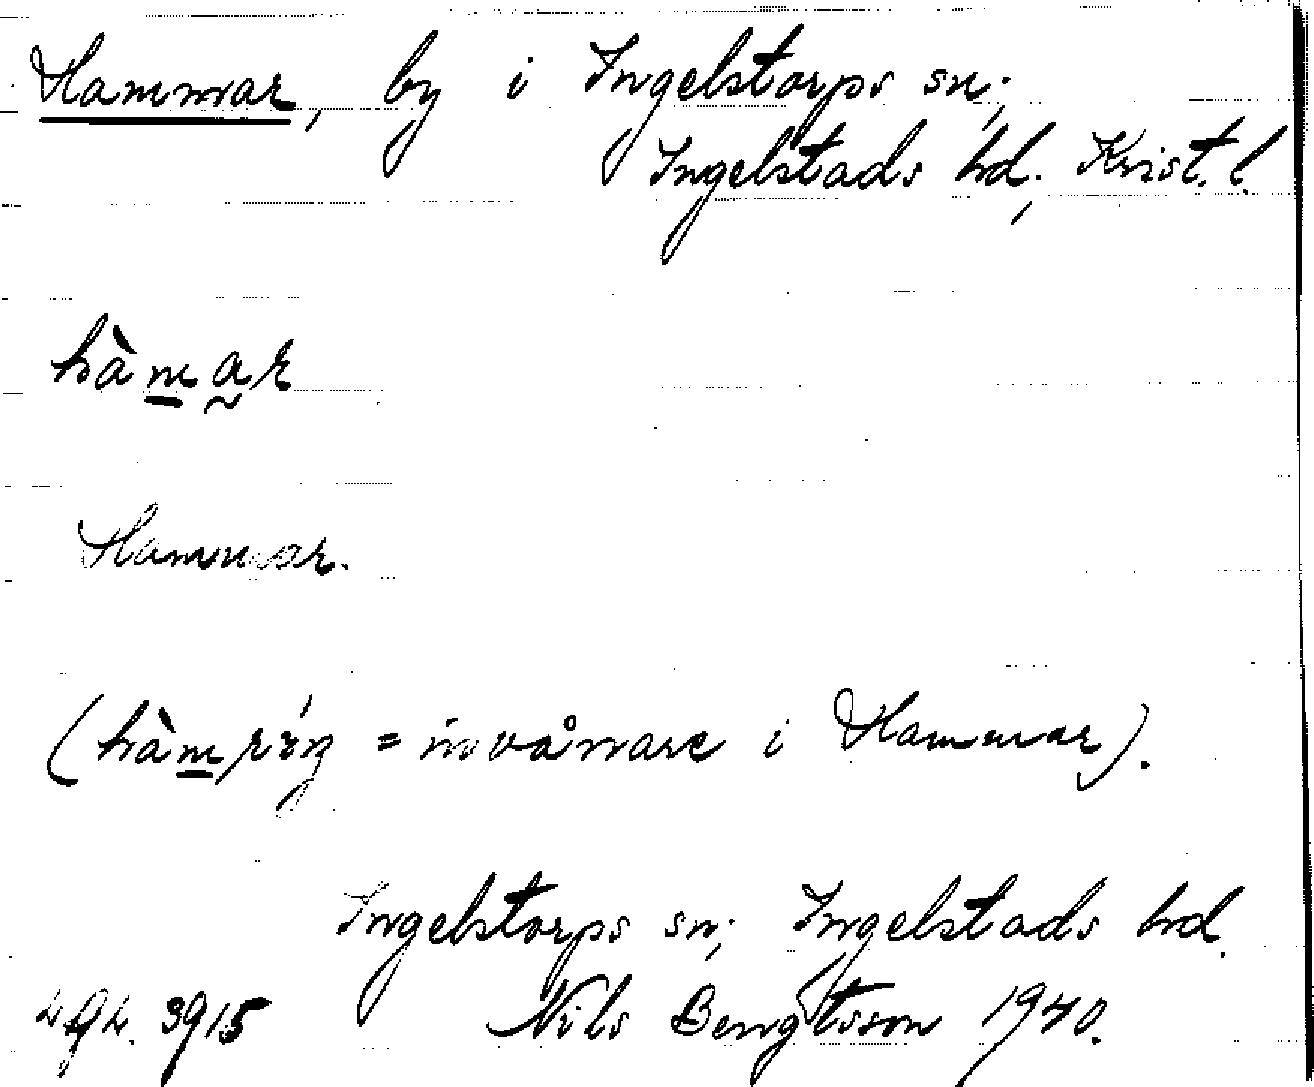 Hammar, by i Ingelstorps sn;
Ingelstads hd; Krist. l.
hàmar
Hammar.
(hàmríŋ = invånare i Hammar).
Ingelstorps sn; Ingelstads hd.
3915 Nils Bengtsson 1940.